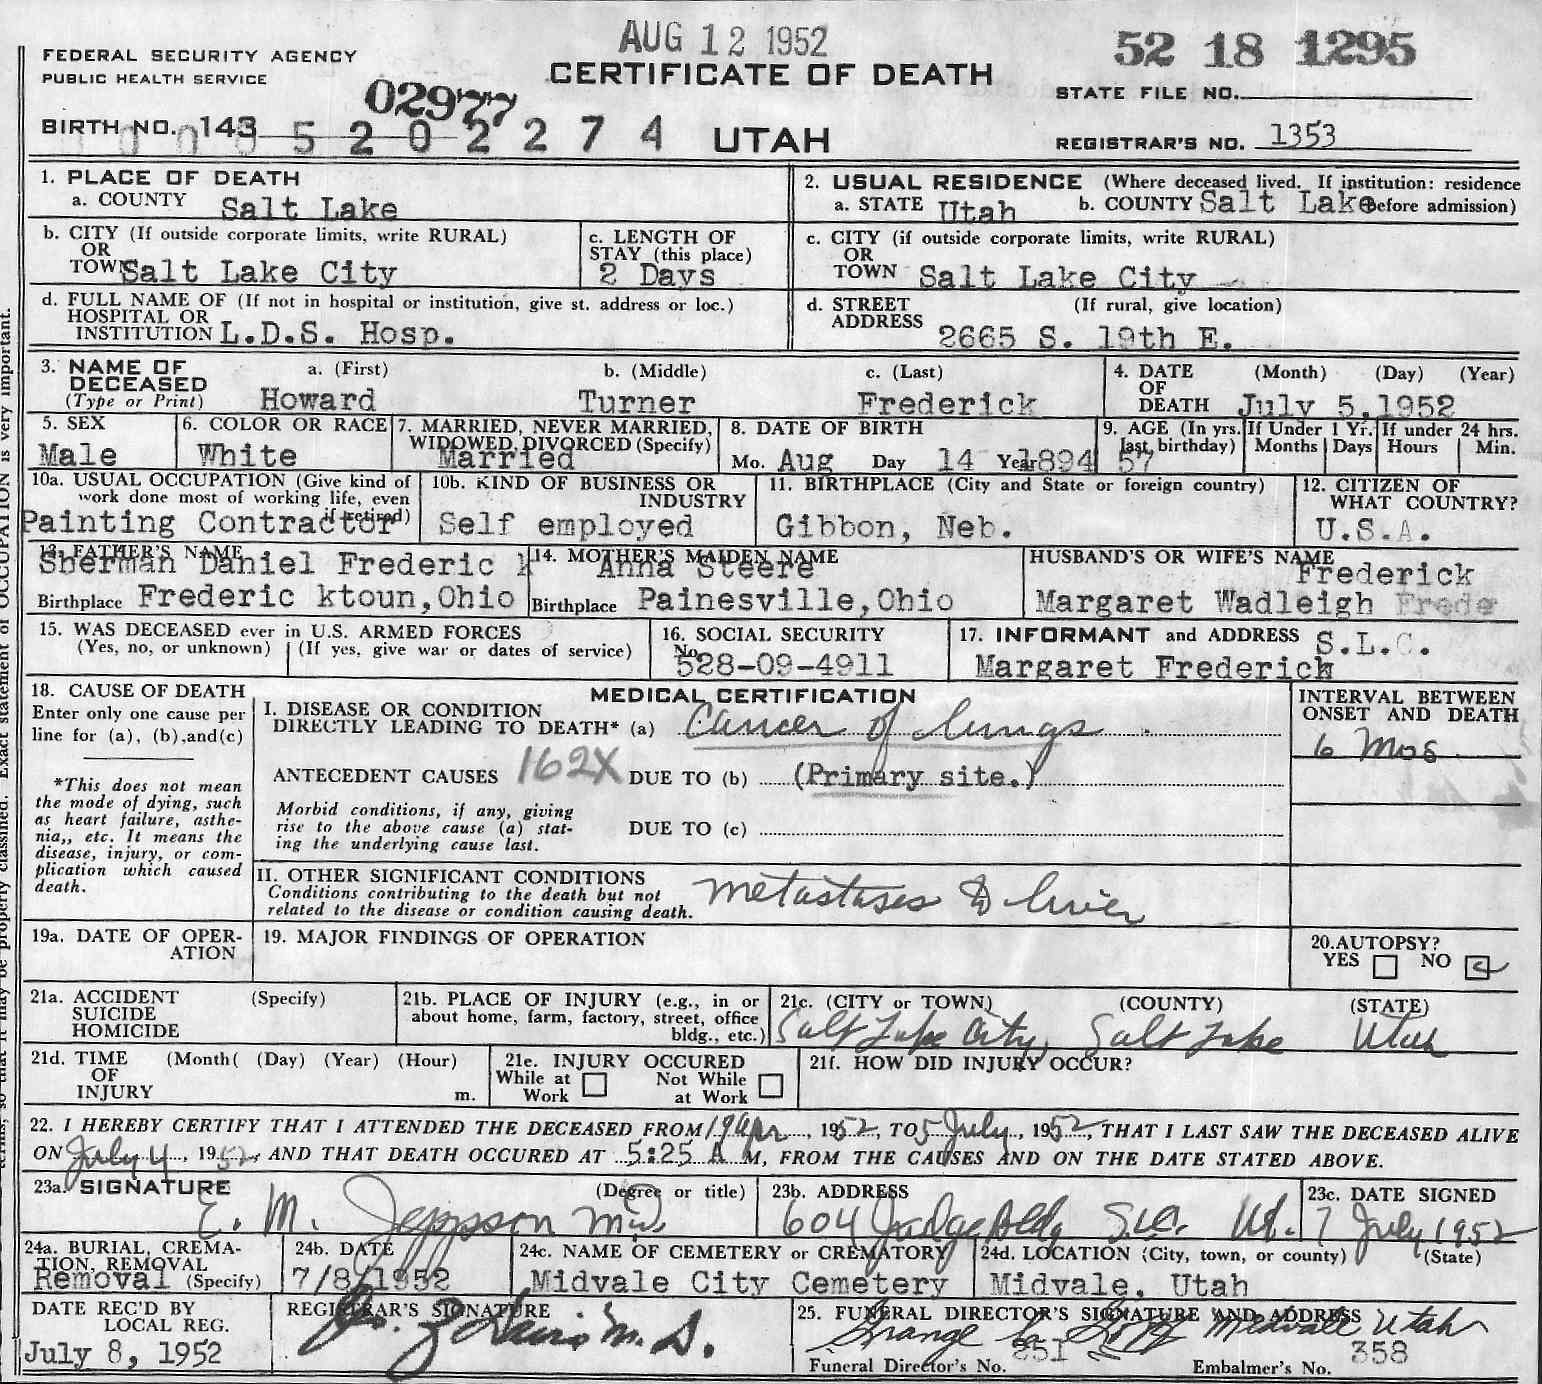 AUG 12 1952
52 18 1295
FEDERAL SECURITY AGENCY
PUBLIC HEALTH SERVICE
CERTIFICATE OF DEATH
STATE FILE NO.
02977
BIRTH NO. 143 5 2 0 2 2 7 4 UTAH
REGISTRAR'S NO. 1353
1. PLACE OF DEATH
a. COUNTY Salt Lake
2. USUAL RESIDENCE (Where deceased lived. If institution: residence
a. STATE Utah b. COUNTY Salt Lake before admission)
b. CITY (If outside corporate limits, write RURAL)
OR
TOWN Salt Lake City
c. LENGTH OF
STAY (this place)
2 Days
c. CITY (if outside corporate limits, write RURAL)
OR
TOWN Salt Lake City
d. FULL NAME OF (If not in hospital or institution, give st. address or loc.)
HOSPITAL OR
INSTITUTION L.D.S. Hosp.
d. STREET (If rural, give location)
ADDRESS
2665 S. 19th E.
3. NAME OF a. (First) b. (Middle) c. (Last)
DECEASED
(Type or Print) Howard Turner Frederick
4. DATE (Month) (Day) (Year)
OF
DEATH July 5,1952
5. SEX
Male
6. COLOR OR RACE
White
7. MARRIED, NEVER MARRIED,
WIDOWED, DIVORCED (Specify)
Married
8. DATE OF BIRTH
Mo. Aug Day 14 Year 1894
9. AGE (In yrs.
last birthday)
57
If Under 1 Yr.
Months Days
If under 24 hrs.
Hours Min.
10a. USUAL OCCUPATION (Give kind of
work done most of working life, even
if retired)
Painting Contractor
10b. KIND OF BUSINESS OR
INDUSTRY
Self employed
11. BIRTHPLACE (City and State or foreign country)
Gibbon, Neb.
12. CITIZEN OF
WHAT COUNTRY?
U.S.A.
13. FATHER'S NAME
Sherman Daniel Frederic k
Birthplace Frederic ktoun,Ohio
14. MOTHER'S MAIDEN NAME
Anna Steere
Birthplace Painesville,Ohio
HUSBAND'S OR WIFE'S NAME
Frederick
Margaret Wadleigh Frede
15. WAS DECEASED ever in U.S. ARMED FORCES
(Yes, no, or unknown) (If yes, give war or dates of service)
16. SOCIAL SECURITY
No.
528-09-4911
17. INFORMANT and ADDRESS S.L.C.
Margaret Frederick
18. CAUSE OF DEATH
Enter only one cause per
line for (a), (b),and(c)
*This does not mean
the mode of dying, such
as heart failure, asthe-
nia,, etc. It means the
disease, injury, or com-
plication which caused
death.
MEDICAL CERTIFICATION
I. DISEASE OR CONDITION
DIRECTLY LEADING TO DEATH* (a) Cancer of lungs
ANTECEDENT CAUSES 162X DUE TO (b) (Primary site.)
Morbid conditions, if any, giving
rise to the above cause (a) stat-
ing the underlying cause last.
DUE TO (c)
II. OTHER SIGNIFICANT CONDITIONS
Conditions contributing to the death but not
related to the disease or condition causing death.
metastases to liver
INTERVAL BETWEEN
ONSET AND DEATH
6 Mos
19a. DATE OF OPER-
ATION
19. MAJOR FINDINGS OF OPERATION
20.AUTOPSY?
YES NO
21a. ACCIDENT (Specify)
SUICIDE
HOMICIDE
21b. PLACE OF INJURY (e.g., in or
about home, farm, factory, street, office
bldg., etc.)
21c. (CITY or TOWN) (COUNTY) (STATE)
Salt Lake City, Salt Lake Utah
21d. TIME (Month( (Day) (Year) (Hour)
OF
INJURY m.
21e. INJURY OCCURED
While at Work Not While at Work
21f. HOW DID INJURY OCCUR?
22. I HEREBY CERTIFY THAT I ATTENDED THE DECEASED FROM 19 Apr, 1952, TO 5 July, 1952, THAT I LAST SAW THE DECEASED ALIVE
ON July 4, 1952, AND THAT DEATH OCCURED AT 5:25 A M, FROM THE CAUSES AND ON THE DATE STATED ABOVE.
23a. SIGNATURE (Degree or title)
E. M. Jeppson MD
23b. ADDRESS
604 Judge Bldg S.L.C. Ut.
23c. DATE SIGNED
7 July 1952
24a. BURIAL, CREMA-
TION, REMOVAL
Removal (Specify)
24b. DATE
7/8/1952
24c. NAME OF CEMETERY OR CREMATORY
Midvale City Cemetery
24d. LOCATION (City, town, or county) (State)
Midvale, Utah
DATE REC'D BY
LOCAL REG.
July 8, 1952
REGISTRAR'S SIGNATURE
M.D.
25. FUNERAL DIRECTOR'S SIGNATURE AND ADDRESS
Midvale Utah
Funeral Director's No. 251
Embalmer's No. 358